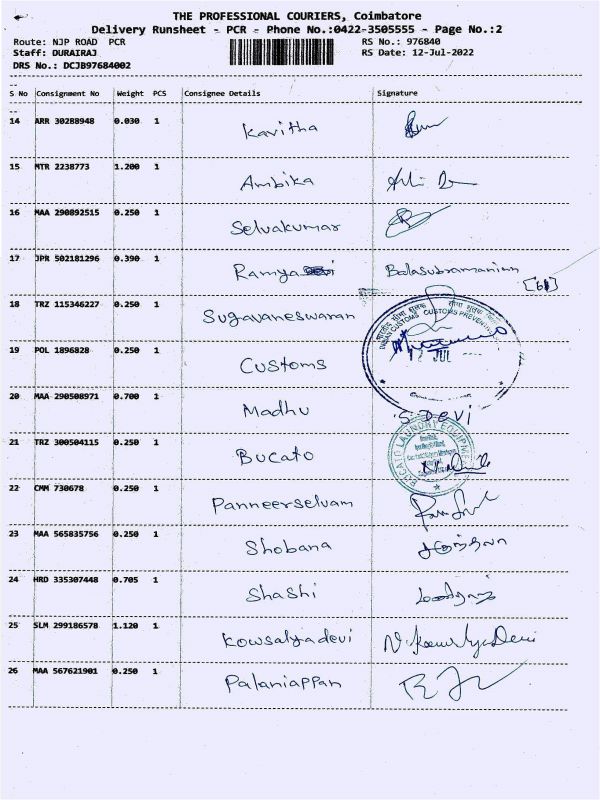 THE PROFESSIONAL COURIERS, Coimbatore
Delivery Runsheet - PCR - Phone No.:0422-3505555 - Page No.:2
Route: NJP ROAD PCR RS No.: 976840
Staff: DURAIRAJ RS Date: 12-Jul-2022
DRS No.: DCJB97684002
S No Consignment No Weight PCS Consignee Details Signature
14 ARR 30288948 0.030 1 Kavitha
15 MTR 2238773 1.200 1 Ambika
16 MAA 290892515 0.250 1 Selvakumar
17 JPR 502181296 0.390 1 Ramya Balasubramanian
18 TRZ 115346227 0.250 1 Sugavaneswaran
INDIAN CUSTOMS CUSTOMS PREVENTIVE
19 POL 1896828 0.250 1 Customs
12 JUL
20 MAA 290508971 0.700 1 Madhu S. DEVI
21 TRZ 300504115 0.250 1 Bucato
BUCATO LAUNDRY EQUIPMENT
22 CMM 730678 0.250 1 Panneerselvam
23 MAA 565835756 0.250 1 Shobana
24 HRD 335307448 0.705 1 Shashi
25 SLM 299186578 1.120 1 Kowsalyadevi
26 MAA 567621901 0.250 1 Palaniappan